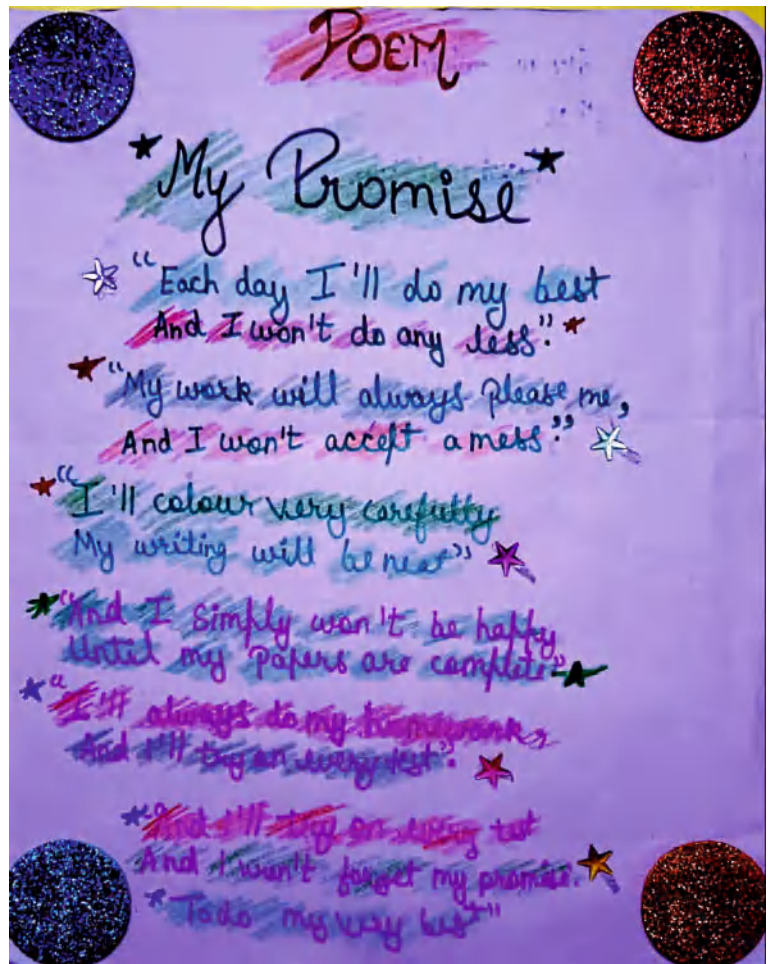 POEM
My Promise
"Each day I'll do my best
And I won't do any less".
"My work will always please me,
And I won't accept a mess."
"I'll colour very carefully
My writing will be neat"
"And I simply won't be happy
Until my papers are complete"
"I'll always do my homework,
And I'll try on every test".
"And I'll try on every test
And I won't forget my promise.
"To do my very best"